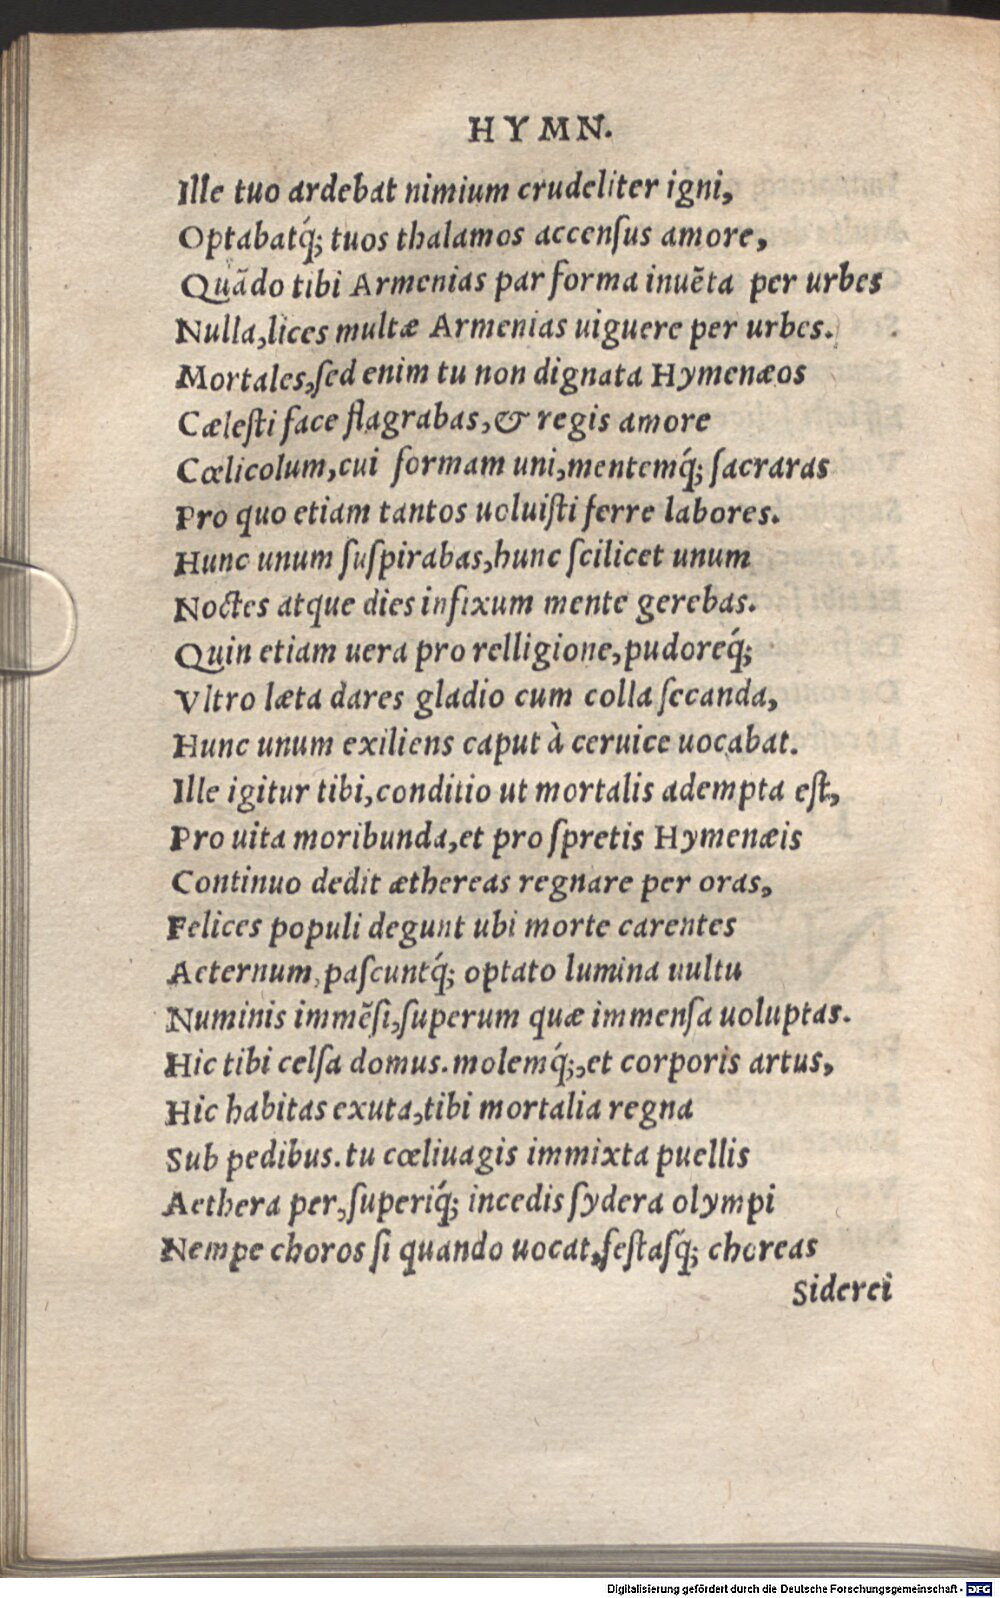 HYMN.
Ille tuo ardebat nimium crudeliter igni,
Optabatq́; tuos thalamos accenſus amore,
Quādo tibi Armenias par forma inuēta per urbes
Nulla,lices multæ Armenias uiguere per urbes.
Mortales,ſed enim tu non dignata Hymenæos
Cæleſti face flagrabas,& regis amore
Cœlicolum,cui formam uni,mentemq́; ſacraras
Pro quo etiam tantos uoluiſti ferre labores.
Hunc unum ſuſpirabas,hunc ſcilicet unum
Noctes atque dies infixum mente gerebas.
Quin etiam uera pro relligione,pudoreq́;
Vltro læta dares gladio cum colla ſecanda,
Hunc unum exiliens caput à ceruice uocabat.
Ille igitur tibi,conditio ut mortalis adempta eſt,
Pro uita moribunda,et pro ſpretis Hymenæis
Continuo dedit æthereas regnare per oras,
Felices populi degunt ubi morte carentes
Aeternum,paſcuntq́; optato lumina uultu
Numinis immēſi,ſuperum quæ immenſa uoluptas.
Hic tibi celſa domus.molemq́;,et corporis artus,
Hic habitas exuta,tibi mortalia regna
Sub pedibus.tu cœliuagis immixta puellis
Aethera per,ſuperiq́; incedis ſydera olympi
Nempe choros ſi quando uocat,feſtaſq́; choreas
Siderei
Digitalisierung gefördert durch die Deutsche Forschungsgemeinschaft - DFG